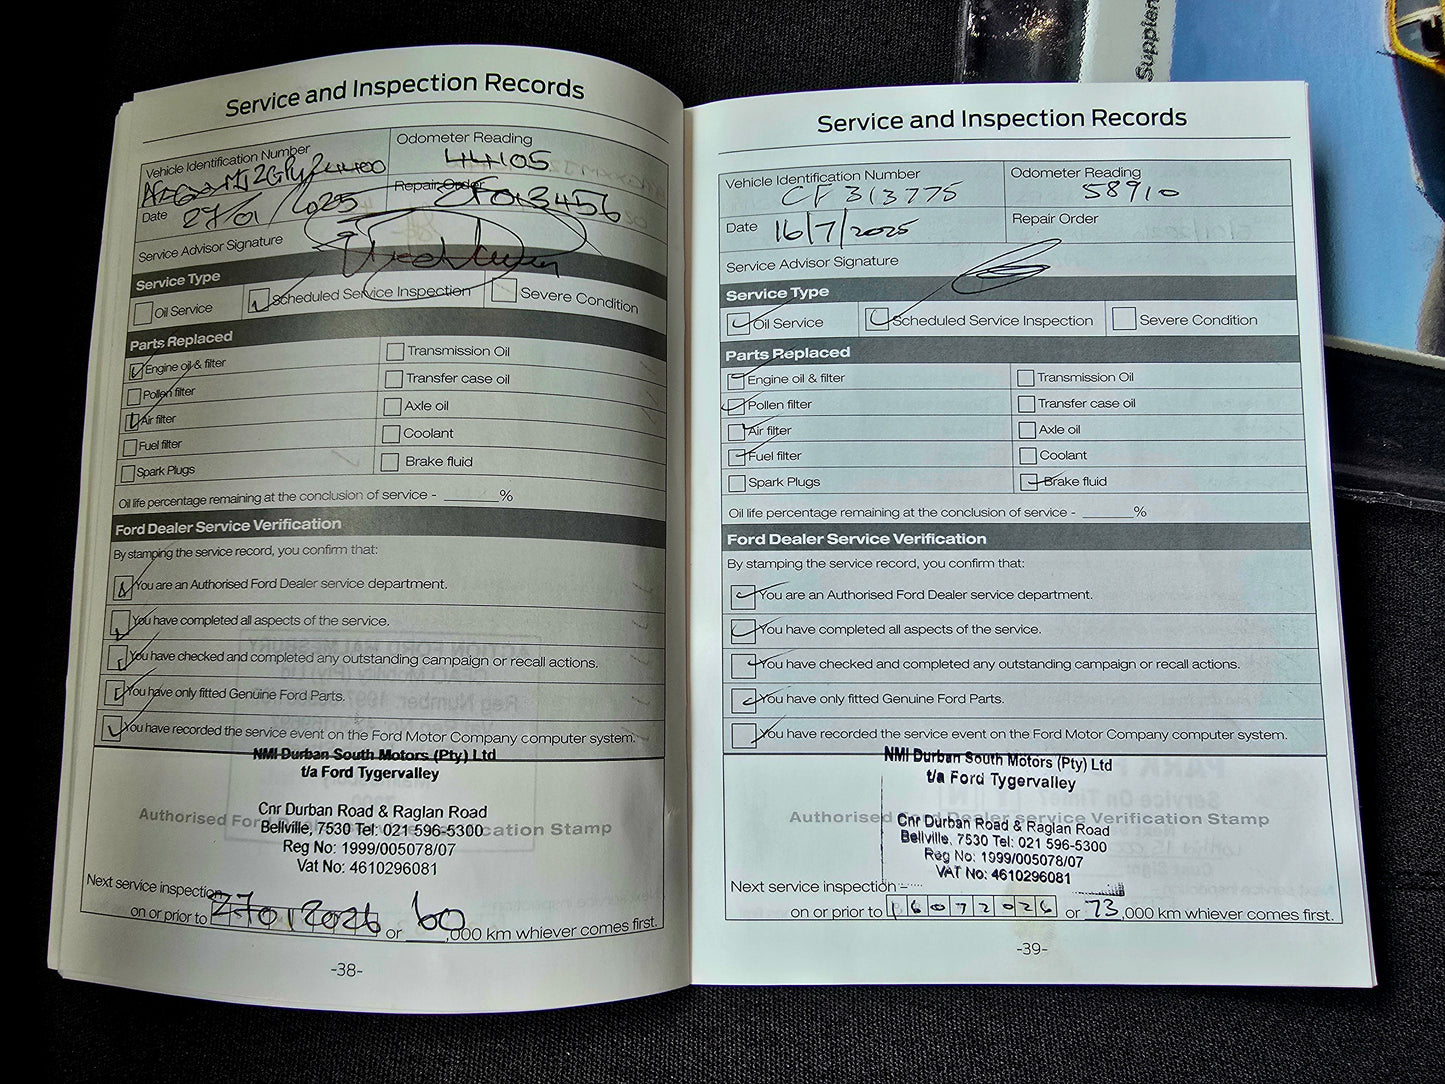 Supplem
Service and Inspection Records
Vehicle Identification Number
Odometer Reading
44105
Date 27/01/2025
Repair Order CF013456
Service Advisor Signature
Service Type
Oil Service Scheduled Service Inspection Severe Condition
Parts Replaced
Engine oil & filter Transmission Oil
Pollen filter Transfer case oil
Air filter Axle oil
Fuel filter Coolant
Spark Plugs Brake fluid
Oil life percentage remaining at the conclusion of service - ______%
Ford Dealer Service Verification
By stamping the service record, you confirm that:
You are an Authorised Ford Dealer service department.
You have completed all aspects of the service.
You have checked and completed any outstanding campaign or recall actions.
You have only fitted Genuine Ford Parts.
You have recorded the service event on the Ford Motor Company computer system.
NMI Durban South Motors (Pty) Ltd
t/a Ford Tygervalley
Cnr Durban Road & Raglan Road
Authorised Ford Dealer service Verification Stamp
Bellville, 7530 Tel: 021 596-5300
Reg No: 1999/005078/07
Vat No: 4610296081
Next service inspection
on or prior to 27012026 or 60,000 km whiever comes first.
-38-
Service and Inspection Records
Vehicle Identification Number
CF 313775
Odometer Reading
58910
Date 16/7/2025
Repair Order
Service Advisor Signature
Service Type
Oil Service Scheduled Service Inspection Severe Condition
Parts Replaced
Engine oil & filter Transmission Oil
Pollen filter Transfer case oil
Air filter Axle oil
Fuel filter Coolant
Spark Plugs Brake fluid
Oil life percentage remaining at the conclusion of service - ______%
Ford Dealer Service Verification
By stamping the service record, you confirm that:
You are an Authorised Ford Dealer service department.
You have completed all aspects of the service.
You have checked and completed any outstanding campaign or recall actions.
You have only fitted Genuine Ford Parts.
You have recorded the service event on the Ford Motor Company computer system.
NMI Durban South Motors (Pty) Ltd
t/a Ford Tygervalley
Cnr Durban Road & Raglan Road
Authorised Ford Dealer service Verification Stamp
Bellville, 7530 Tel: 021 596-5300
Reg No: 1999/005078/07
VAT No: 4610296081
Next service inspection –
on or prior to 16072026 or 73,000 km whiever comes first.
-39-